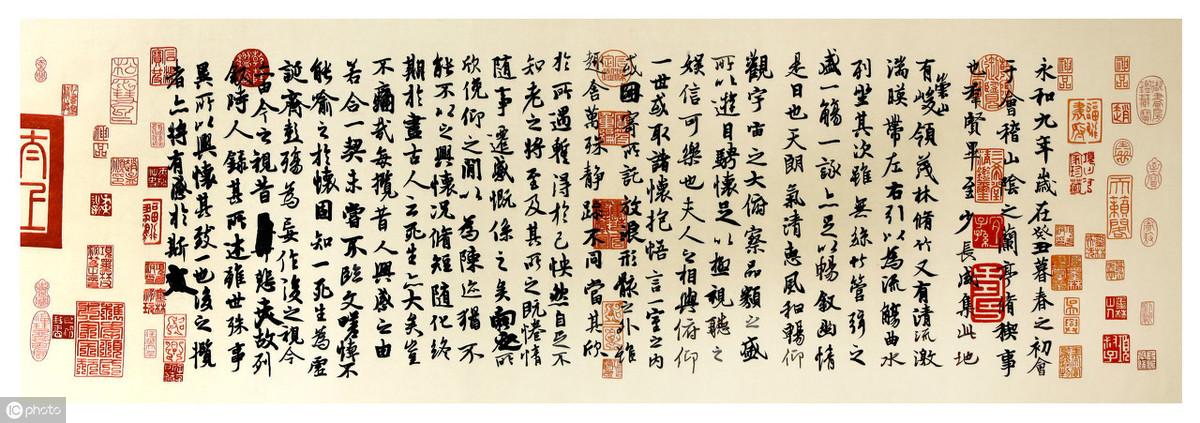 永和九年歲在癸丑暮春之初會
于會稽山陰之蘭亭脩稧事
也羣賢畢至少長咸集此地
有崇山峻領茂林脩竹又有清流激
湍暎帶左右引以為流觴曲水
列坐其次雖無絲竹管弦之
盛一觴一詠亦足以暢叙幽情
是日也天朗氣清惠風和暢仰
觀宇宙之大俯察品類之盛
所以遊目騁懷足以極視聽之
娛信可樂也夫人之相與俯仰
一世或取諸懷抱悟言一室之內
或因寄所託放浪形骸之外雖
趣舍萬殊靜躁不同當其欣
於所遇暫得於己怏然自足不
知老之將至及其所之既惓情
隨事遷感慨係之矣向之所
欣俛仰之間以為陳迹猶不
能不以之興懷況脩短隨化終
期於盡古人云死生亦大矣豈
不痛哉每攬昔人興感之由
若合一契未嘗不臨文嗟悼不
能喻之於懷固知一死生為虛
誕齊彭殤為妄作後之視今
亦由今之視昔悲夫故列
敘時人錄其所述雖世殊事
異所以興懷其致一也後之攬
者亦將有感於斯文
神品
神品
趙
神品
IC photo